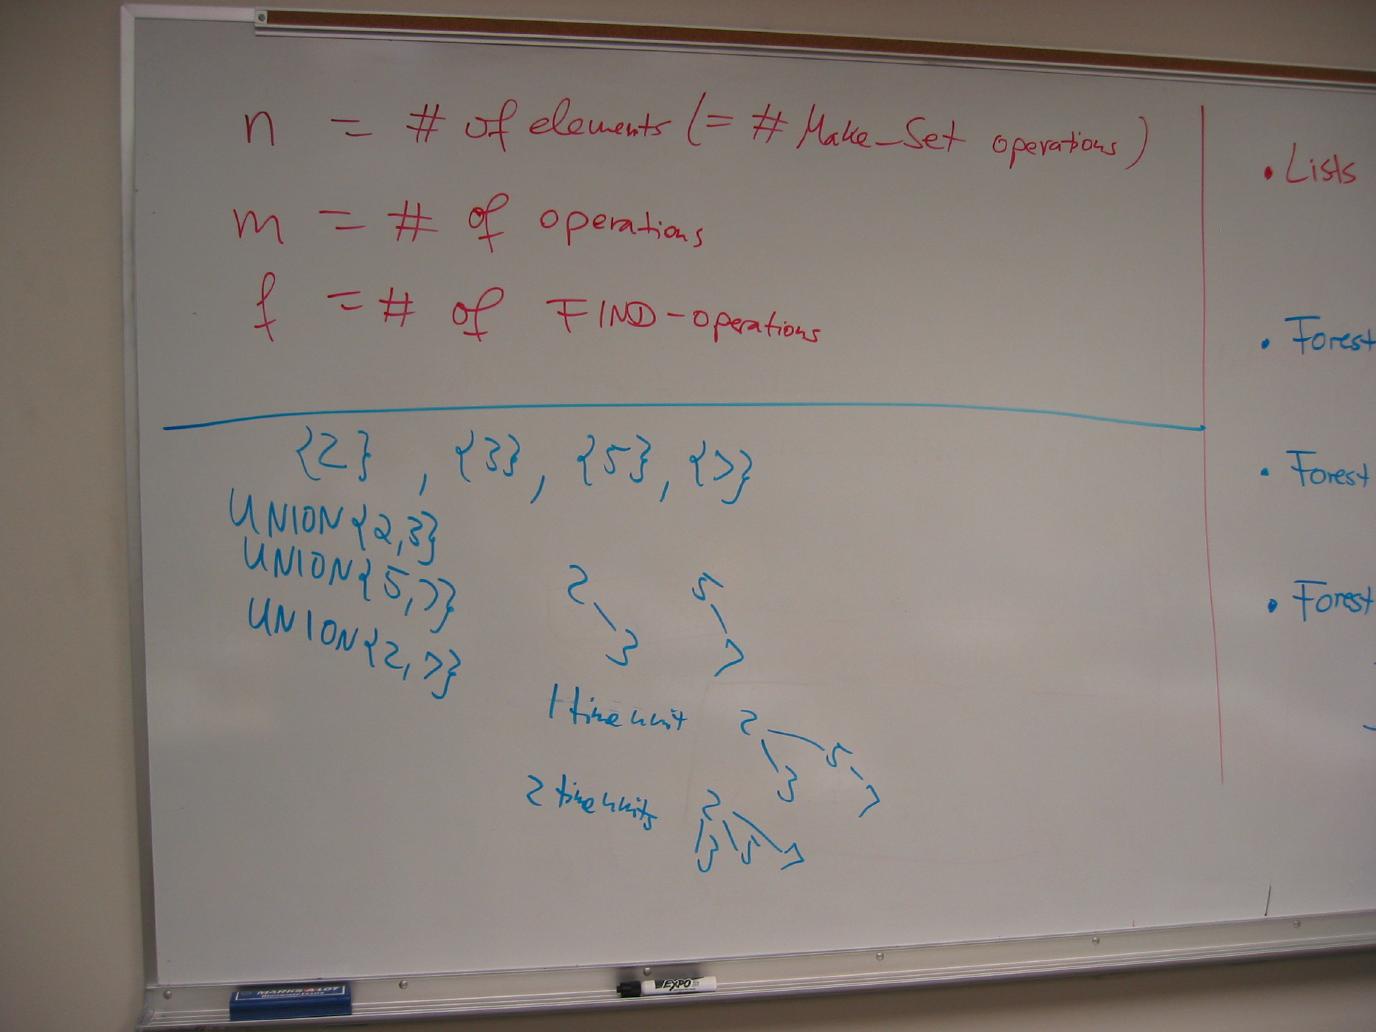 n = # of elements (= # Make-Set operations)
m = # of operations
f = # of FIND-operations
{2} , {3}, {5}, {7}
UNION{2,3}
UNION{5,7}
UNION{2,7}
2 5
3 7
1 time unit 2 5
3 7
2 time units 2
3 5 7
• Lists
• Forest
• Forest
• Forest
MARKS-A-LOT
EXPO